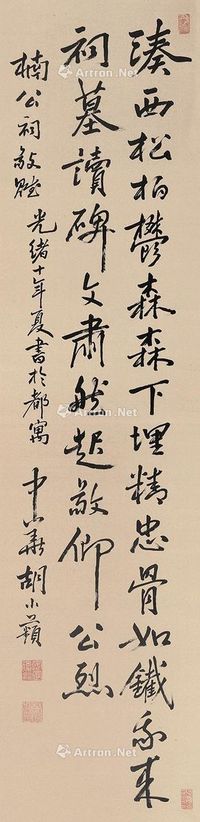 湊西松柏鬱森森下埋精忠骨如鐵我来
祠墓讀碑文肅然起敬仰公烈
楠公祠敬賦 光緒十年夏書於都寓
中華胡小蘋
Artron.Net
Artron.Net
Artron.Net
Artron.Net